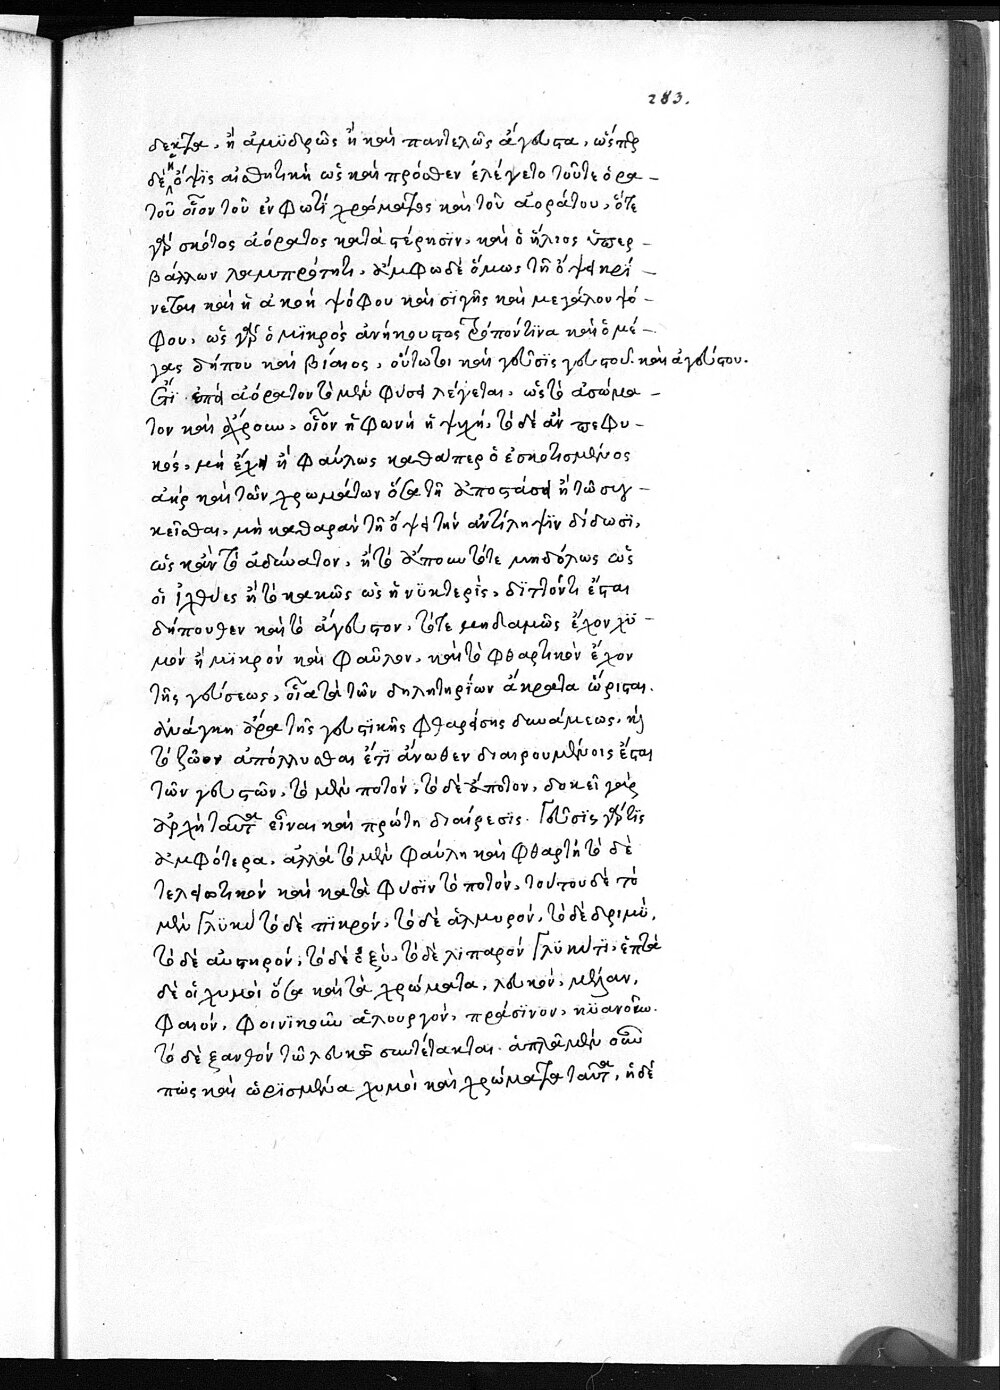 283.
δεκτα, ἢ ἀμϋδρῶς ἢ καὶ παντελῶς ἄγευστα, ὥσπερ
δὲ ἡ ὄψις αἰσθητικὴ ὡς καὶ πρόσθεν ἐλέγετο τοῦτε ὁρα –
τοῦ οἷον τοῦ ἐν φωτὶ χρώματος καὶ τοῦ ἀοράτου, ὅτε
γὰρ σκότος ἀόρατος κατὰ στέρησϊν, καὶ ὁ ἥλιος ὑπερ –
βάλλων λαμπρότητι, ἄμφω δὲ ὅμως τῇ ὄψει κρί –
νεται καὶ ἡ ἀκοὴ ψόφου καὶ σϊγῆς καὶ μεγάλου ψό –
φου, ὡς γὰρ ὁ μϊκρὸς ἀνήκουστος τρόπον τϊνα καὶ ὁ μέ –
γας δήπου καὶ βίαιος, οὕτωσι καὶ γεῦσϊς γευστοῦ καὶ ἀγεύστου.
ἔτϊ ἐπεὶ ἀόρατον τὸ μὲν φύσει λέγεται, ὡς τὸ ἀσώμα –
τον καὶ ἄχρουν, οἷον ἢ φωνὴ ἢ ψυχή, τὸ δὲ ἂν πεφυ –
κός, μὴ ἔχῃ ἢ φαύλως καθάπερ ὁ ἐσκοτισμένος
ἀὴρ καὶ τῶν χρωμάτων ὅσα τῇ ἀποστάσει ἢ τῷ συγ –
κεῖσθαι, μὴ καθαρὰν τῇ ὄψει τὴν ἀντίληψϊν δίδωσϊ,
ὡς κἂν τὸ ἀδύνατον, ἢ τὸ ἄπουν τότε μηδόλως ὡς
οἱ ἰχθύες ἢ τὸ κακῶς ὡς ἡ νϋκτερὶς, διττόντι ἔσται
δήπουθεν καὶ τὸ ἄγευστον, τότε μηδαμῶς ἔχον χϋ –
μὸν ἢ μϊκρὸν καὶ φαῦλον, καὶ τὸ φθαρτικὸν ἔχον
τῆς γεύσεως, οἷα τὰ τῶν δηλητηρίων ἄκρατα ὥρισται.
ἀνάγκη ἄρα τῆς γευστικῆς φθαρείσης δυνάμεως, καὶ
τὸ ζῶον ἀπόλλυσθαι ἔτϊ ἄνωθεν διαιρουμένοις ἔσται
τῶν γευστῶν, τὸ μὲν ποτόν, τὸ δὲ ἄποτον, δοκεῖ γὰρ
ἀρχὴ ταῦτα εἶναι καὶ πρώτη διαίρεσϊς. Γεῦσϊς γάρ τϊς
ἀμφότερα, ἀλλὰ τὸ μὲν φαύλη καὶ φθαρτὴ τὸ δὲ
τελειωτικὸν καὶ κατὰ φύσϊν τὸ ποτόν, τούτου δὲ τὸ
μὲν Γλϋκὺ τὸ δὲ πϊκρόν, τὸ δὲ ἁλμυρόν, τὸ δὲ δριμύ,
τὸ δὲ αὐστηρόν, τὸ δὲ ὀξύ, τὸ δὲ λϊπαρὸν Γλϋκύ τϊ, ἑπτὰ
δὲ οἱ χυμοὶ ὅσα καὶ τὰ χρώματα, λευκόν, μέλαν,
φαιόν, φοινϊκοῦν ἁλουργόν, πράσϊνον, κϋανοῦν.
τὸ δὲ ξανθὸν τῷ λευκῷ συντέτακται. ἁπλᾶ μὲν οὖν
πὼς καὶ ὡρϊσμένα χυμοὶ καὶ χρώματα ταῦτα, ἡ δὲ